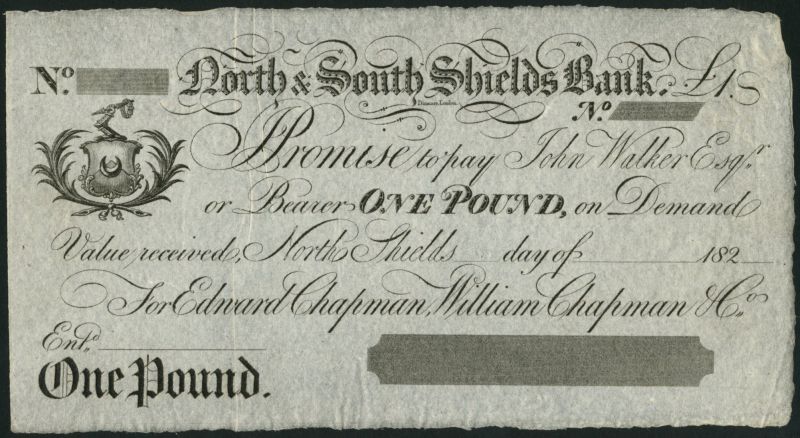 No. North & South Shields Bank. £1.
No.
I Promise to pay John Walker Esqr.
or Bearer ONE POUND, on Demand
Value received, North Shields day of 182
For Edward Chapman, William Chapman & Co.
Entd.
One Pound.